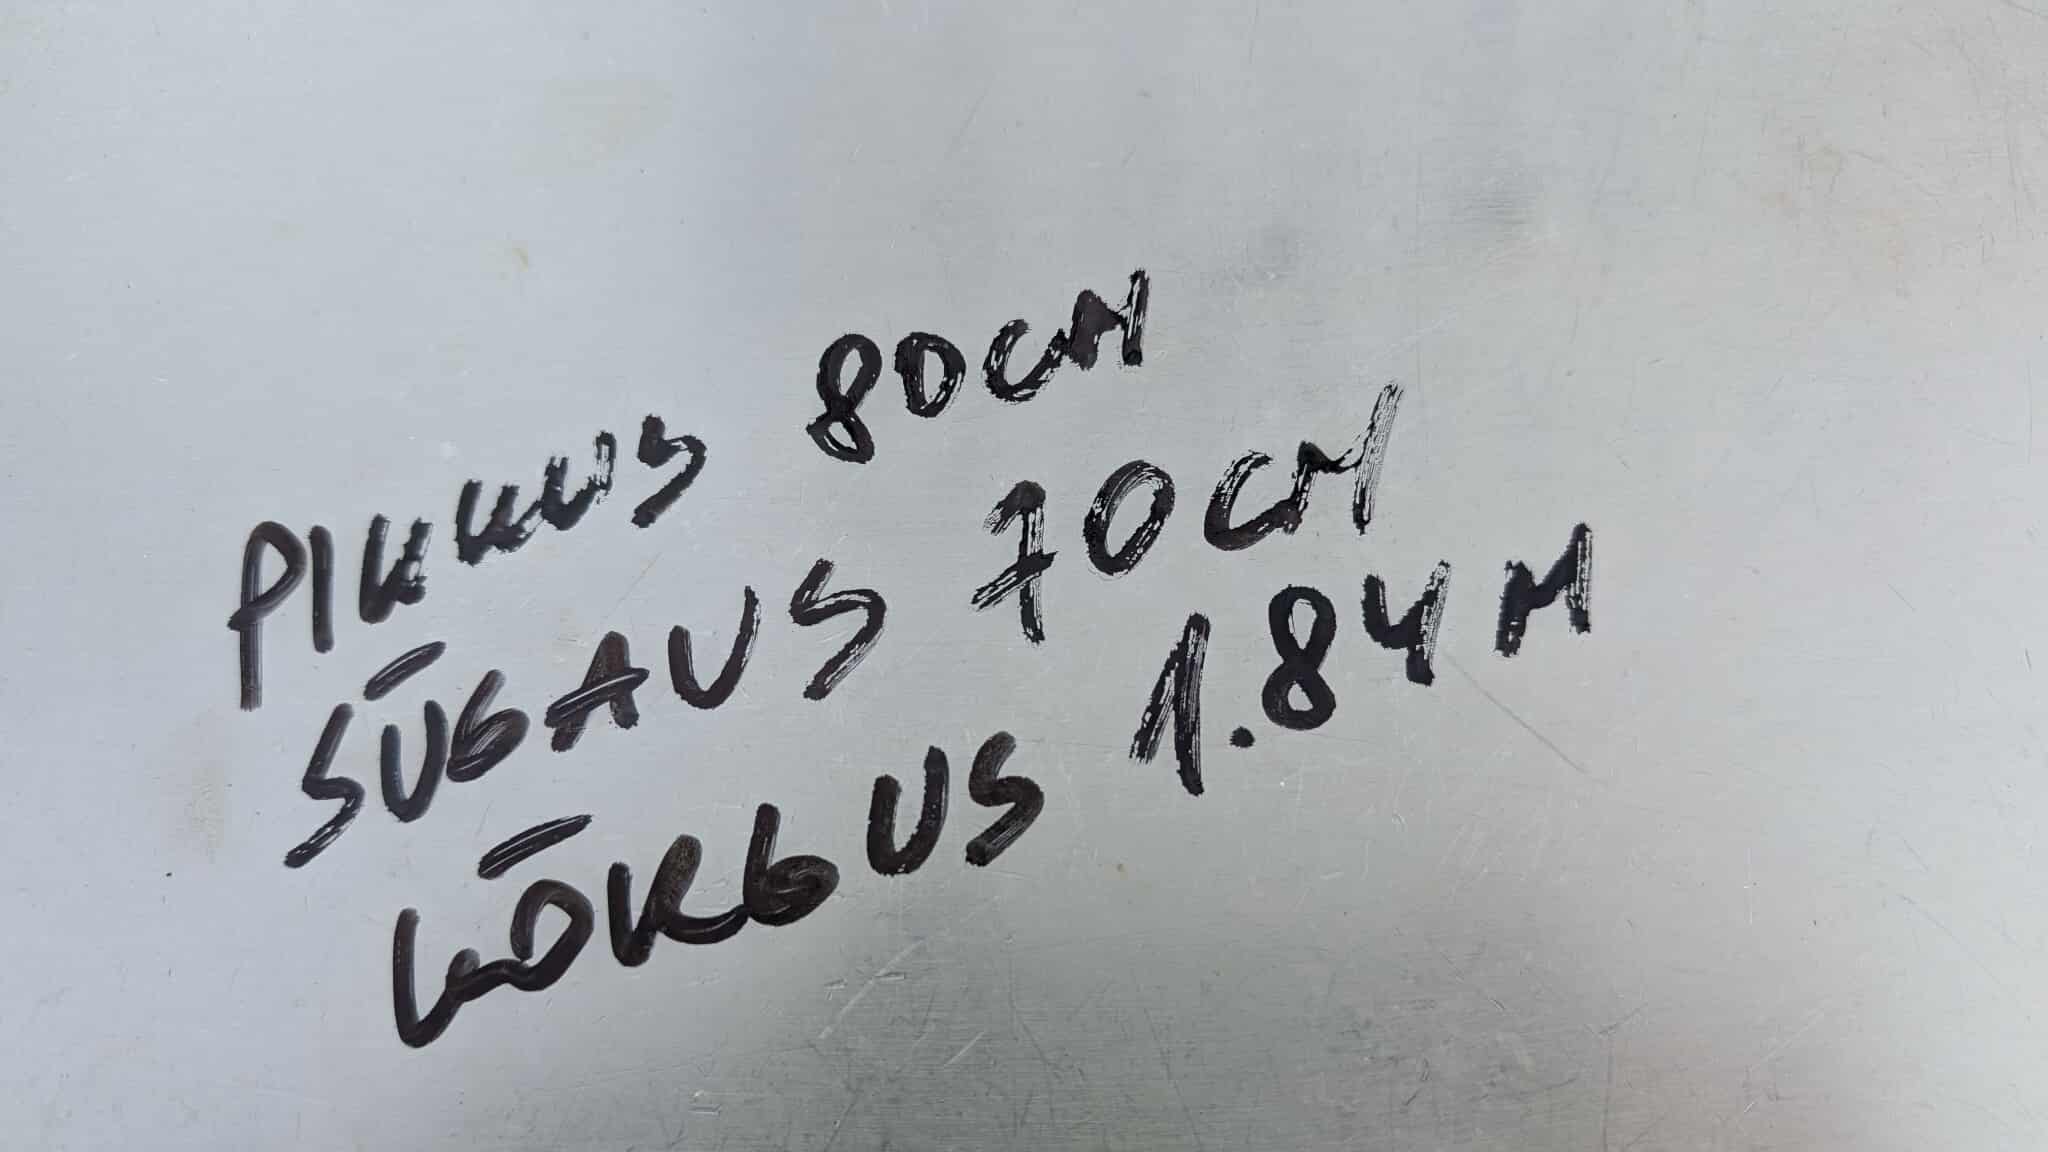 PIKKUS 80CM
SÜGAVUS 70CM
KÕRGUS 1.84M